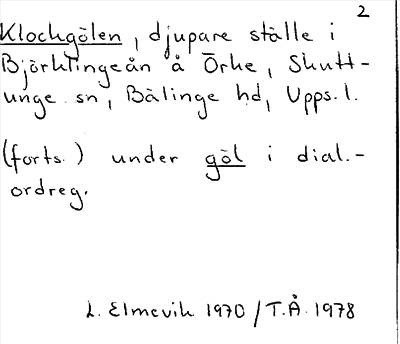 2
Klockgölen, djupare ställe i
Björklingeån å Örke, Skutt-
unge sn, Bälinge hd, Upps. l.
(forts.) under göl i dial.-
ordreg.
L. Elmevik 1970 / T.Å. 1978